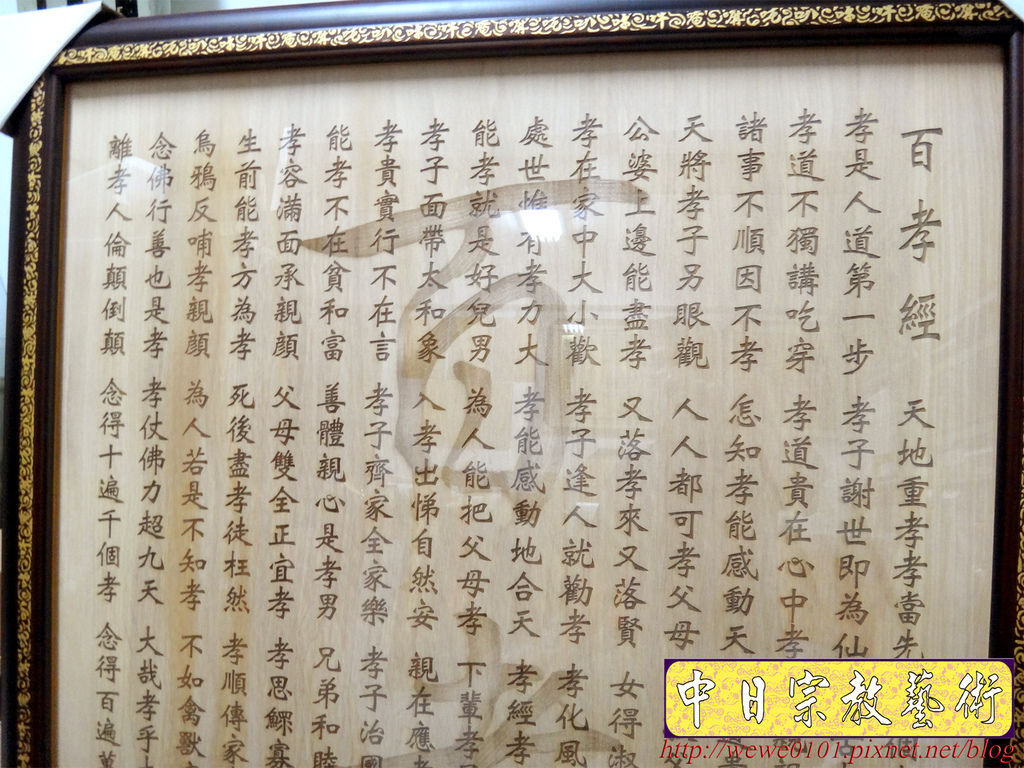 百孝經 天地重孝孝當先
孝是人道第一步 孝子謝世即為仙
孝道不獨講吃穿 孝道貴在心中孝
諸事不順因不孝 怎知孝能感動天
天將孝子另眼觀 人人都可孝父母
公婆上邊能盡孝 又落孝來又落賢 女得淑
孝在家中大小歡 孝子逢人就勸孝 孝化風
處世惟有孝力大 孝能感動地合天 孝經孝
能孝就是好兒男 為人能把父母孝 下輩孝
孝子面帶太和象 入孝出悌自然安 親在應
孝貴實行不在言 孝子齊家全家樂 孝子治國
能孝不在貧和富 善體親心是孝男 兄弟和睦
孝容滿面承親顏 父母雙全正宜孝 孝思鰥寡
生前能孝方為孝 死後盡孝徒枉然 孝順傳家
烏鴉反哺孝親顏 為人若是不知孝 不如禽獸
念佛行善也是孝 孝仗佛力超九天 大哉孝乎
離孝人倫顛倒顛 念得十遍千個孝 念得百遍萬
中日宗教藝術
http://wewe0101.pixnet.net/blog